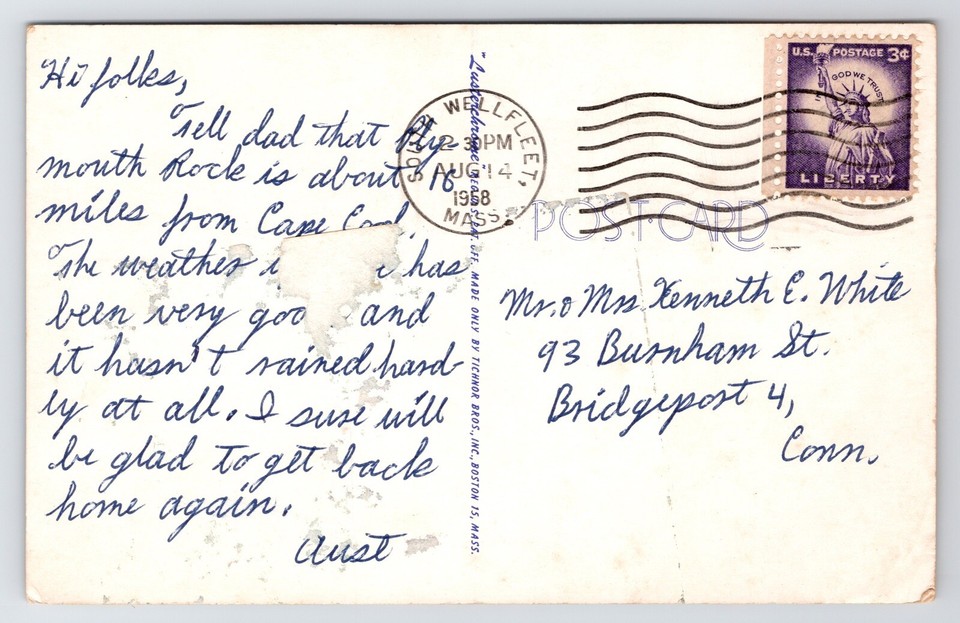 Hi folks,
Tell dad that Ply-
mouth Rock is about 16
miles from Cape Cod.
The weather has
been very good and
it hasn't rained hard-
ly at all. I sure will
be glad to get back
home again.
Aust
"Lustrochrome" REG. U.S. PAT. OFF. MADE ONLY BY TICHNOR BROS., INC., BOSTON 15, MASS.
SOUTH WELLFLEET,
2-30PM
AUG 14
1958
MASS.
U.S. POSTAGE 3¢
IN GOD WE TRUST
LIBERTY
POST CARD
Mr. & Mrs. Kenneth E. White
93 Burnham St.
Bridgeport 4,
Conn.